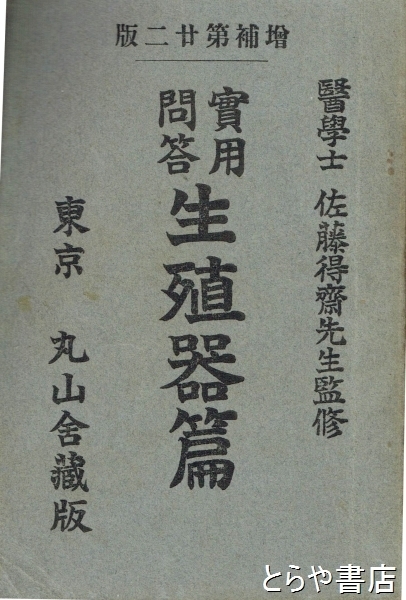 增補第廿二版
醫學士 佐藤得齋先生監修
實用問答 生殖器篇
東京 丸山舍藏版
とらや書店